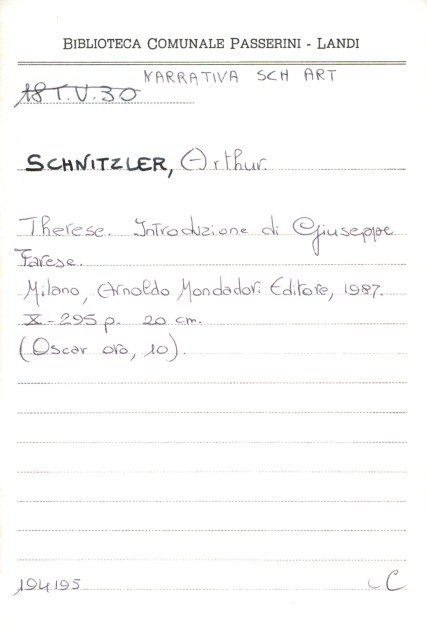 BIBLIOTECA COMUNALE PASSERINI - LANDI
NARRATIVA SCH ART
18 T.V.30
SCHNITZLER, Arthur.
Therese. Introduzione di Giuseppe
Farese.
Milano, Arnoldo Mondadori Editore, 1987.
X-295 p. 20 cm.
(Oscar oro, 10).
194195 C